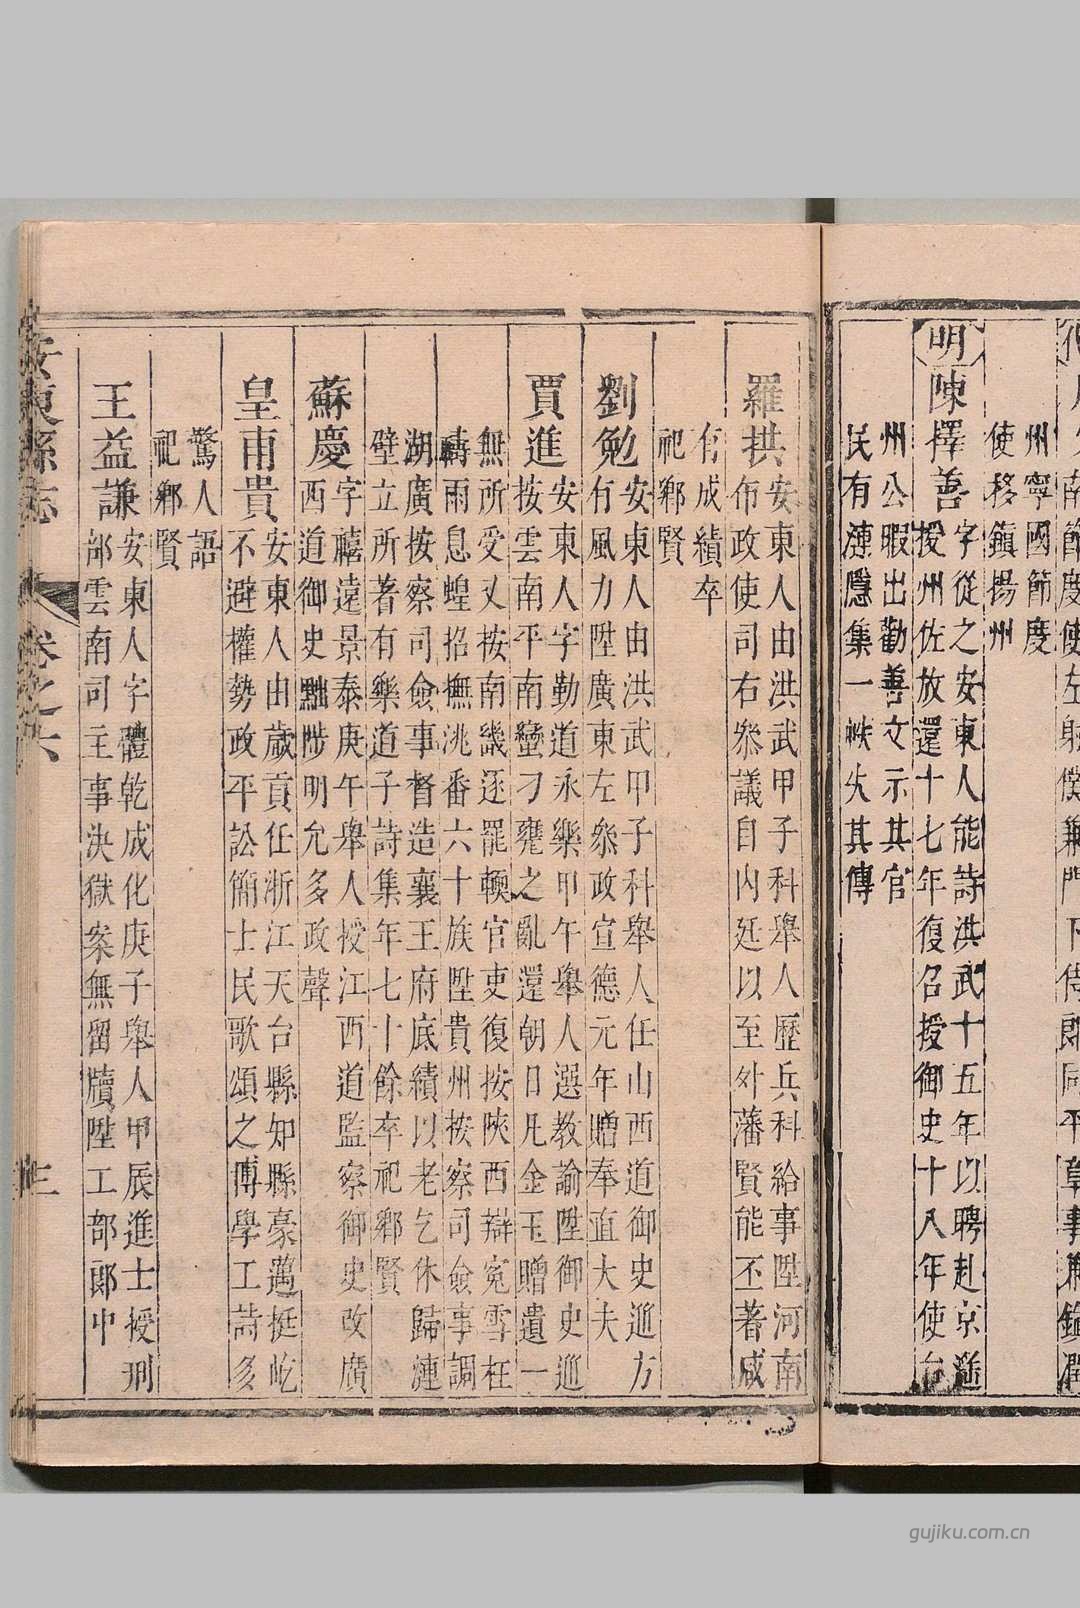 州寧國節度
使移鎮揚州
明
陳擇善
字從之安東人能詩洪武十五年以聘赴京遥
授州佐放還十七年復召授御史十八年使台
州公暇出勸善文示其官
民有漣隱集一帙火其傳
羅拱
安東人由洪武甲子科舉人歷兵科給事陞河南
布政使司右叅議自内廷以至外藩賢能丕著咸
有成績卒
祀鄉賢
劉勉
安東人由洪武甲子科舉人任山西道御史廵方
有風力陞廣東左叅政宣德元年贈奉直大夫
賈進
安東人字勤道永樂甲午舉人選教諭陞御史廵
按雲南平南蠻刁甕之亂還朝日凡金玉贈遺一
無所受又按南畿逐罷輭官吏復按陝西辯寃雪枉
禱雨息蝗招撫洮番六十族陞貴州按察司僉事調
湖廣按察司僉事督造襄王府底績以老乞休歸漣
壁立所著有樂道子詩集年七十餘卒祀鄉賢
蘇慶
字禧遠景泰庚午舉人授江西道監察御史改廣
西道御史黜陟明允多政聲
皇甫貴
安東人由歲貢任浙江天台縣知縣豪邁挺屹
不避權勢政平訟簡士民歌頌之博學工詩多
驚人語
祀鄉賢
王益謙
安東人字體乾成化庚子舉人甲辰進士授刑
部雲南司主事決獄案無留牘陞工部郎中
安東縣志
卷之六
gujiku.com.cn